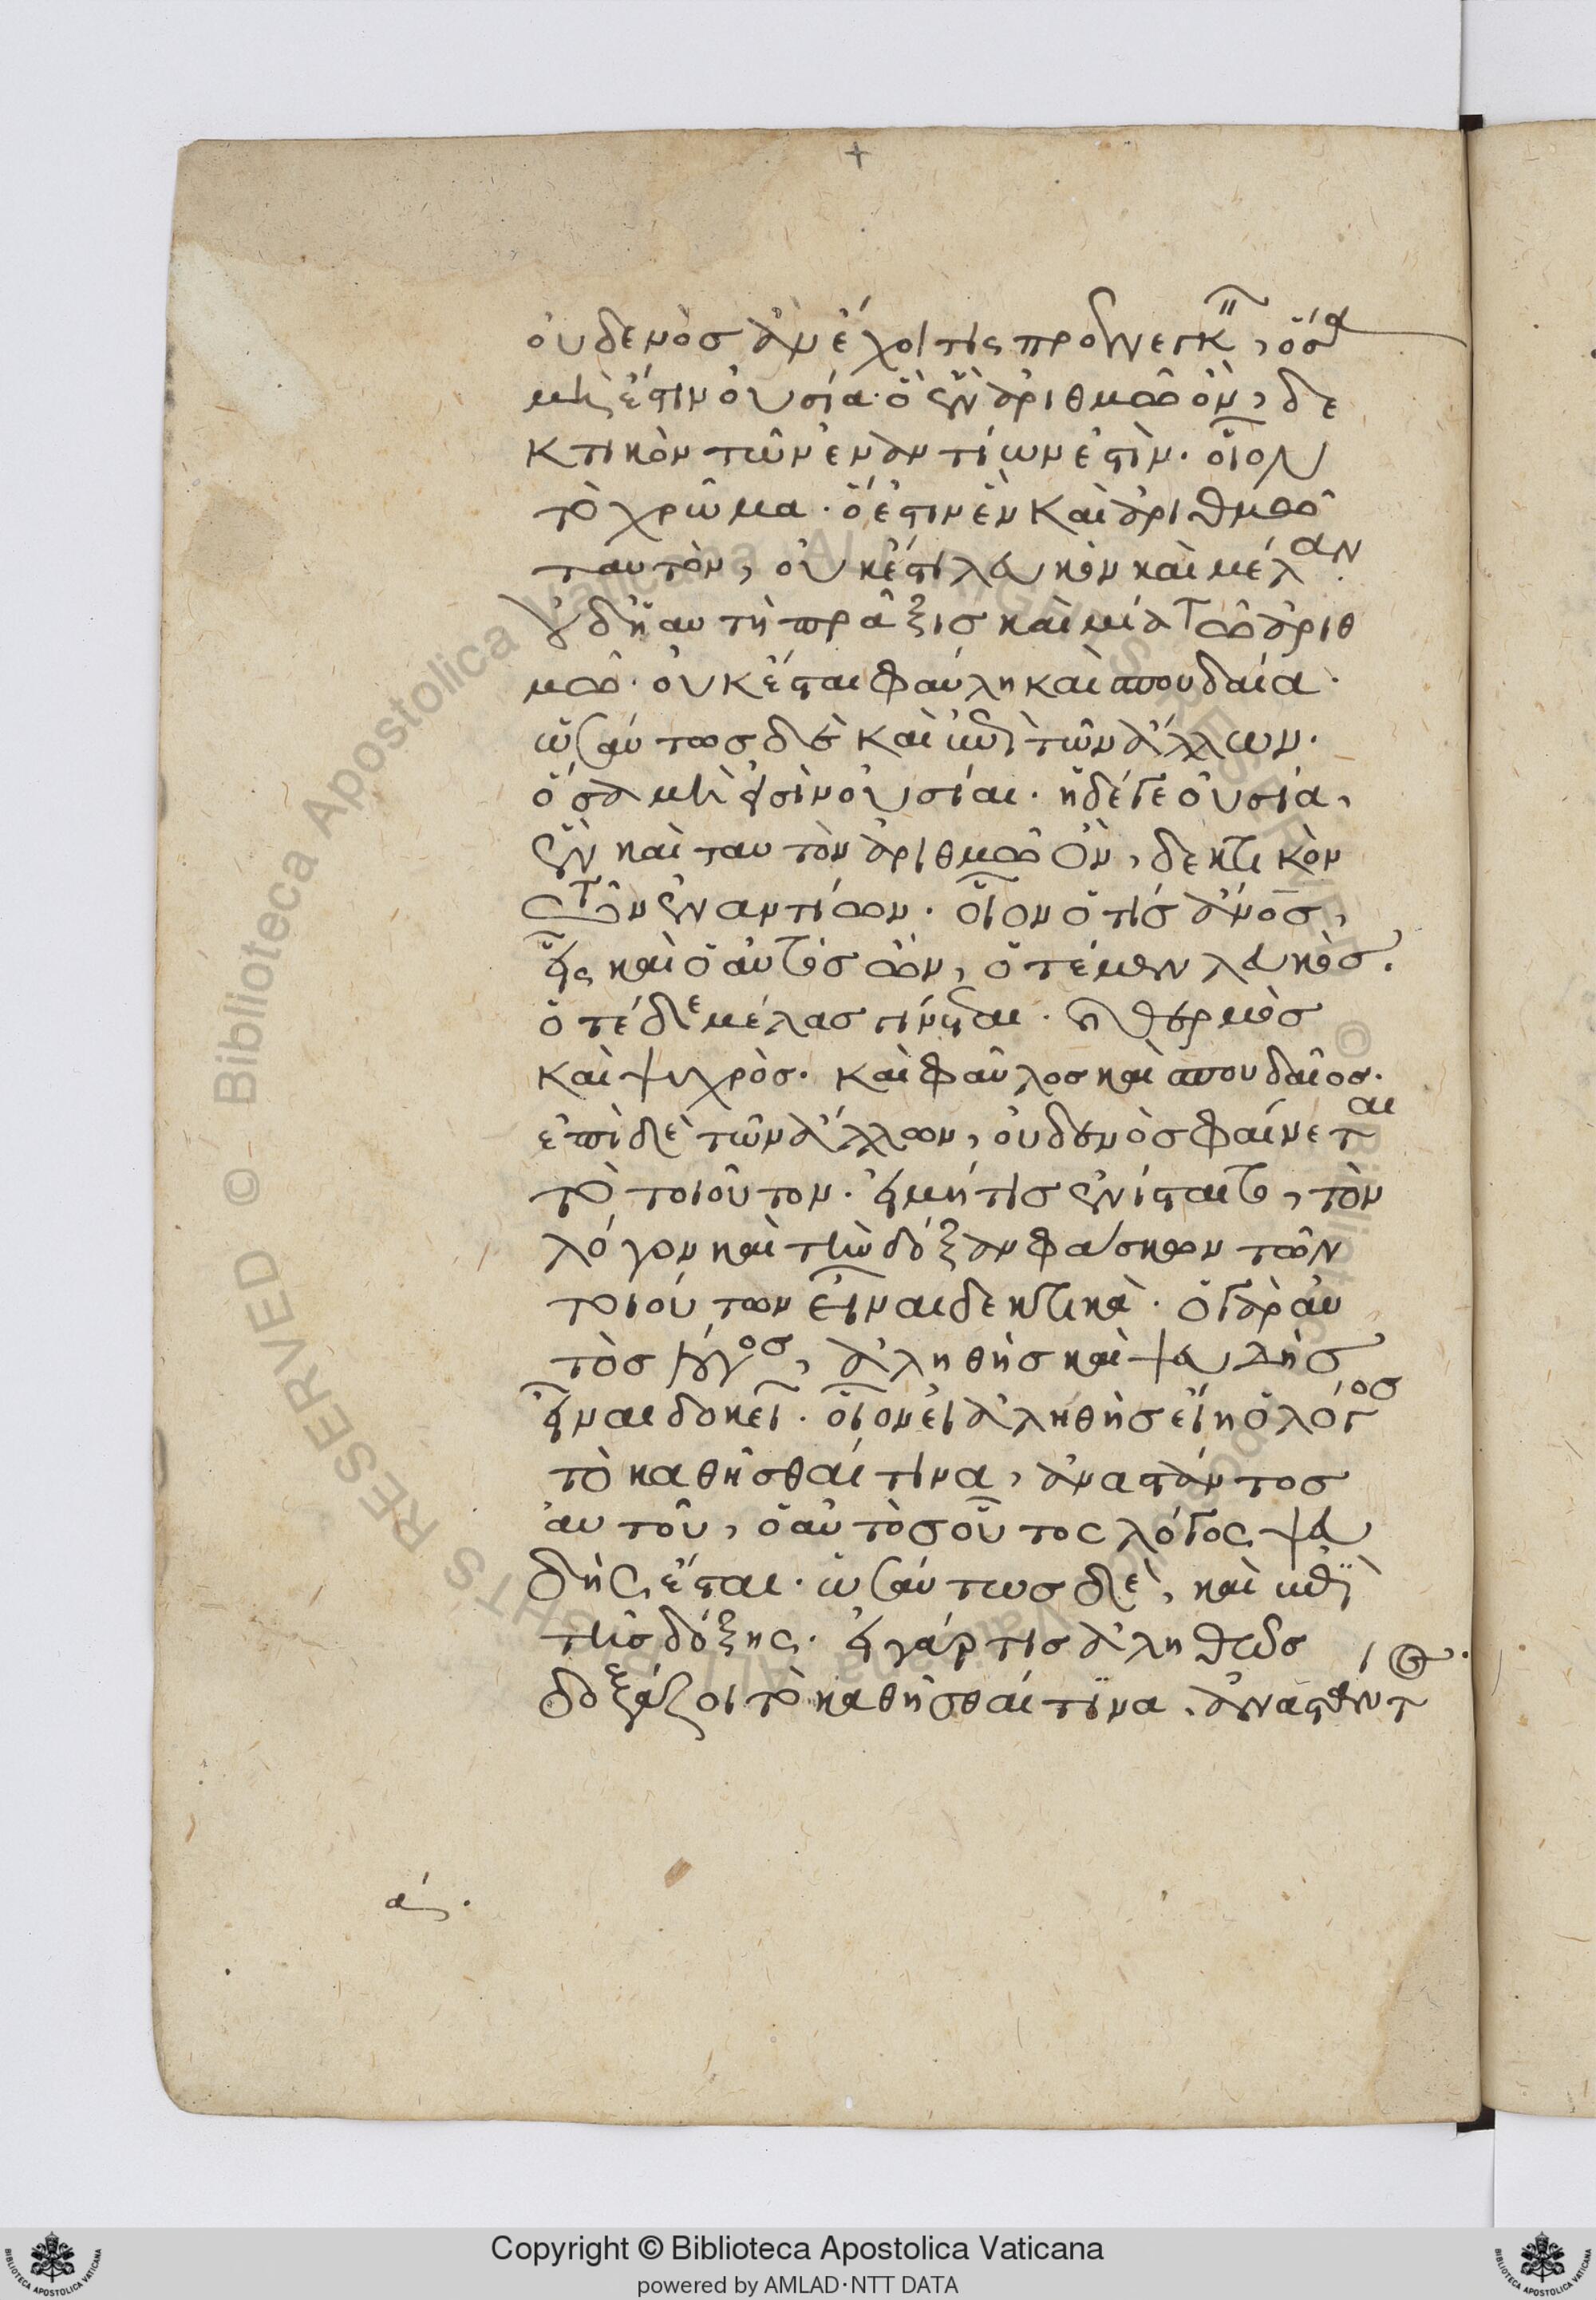 οὐδενὸσ ἂν ἔχοι τις προενεγκεῖν, ὅσα
μή ἐστιν οὐσία· ὃ ἓν ἀριθμῶ ὂν, δε
κτικὸν τῶν ἐναντίων ἐστὶν. οἷον
τὸ χρῶμα. ὅ ἐστιν ἓν καὶ ἀριθμῶ
ταυτὸν, οὐκ ἔσται λευκὸν καὶ μέλαν.
οὐδ' ἡ αυτὴ πρᾶξισ καὶ μία τῶ ἀριθ
μῶ. οὐκ ἔσται φαύλη καὶ σπουδαία.
ὡσαύτωσ δὲ καὶ ἐπὶ τῶν ἄλλων.
ὅσα μή εἰσὶν οὐσίαι. ἡ δέ γε οὐσία,
ἓν καὶ ταυτὸν ἀριθμῶ ὂν, δεκτικὸν
τῶν ἐναντίων. οἷον ὁ τὶσ ἄνοσ,
εἷς καὶ ὁ αὐτὸσ ὢν, ὁτὲ μὲν λευκὸσ.
ὁτὲ δὲ μέλασ γίνεται. καὶ θερμὸσ
καὶ ψυχρὸσ. καὶ φαῦλοσ καὶ σπουδαῖοσ.
ἐπὶ δὲ τῶν ἄλλων, οὐδενὸσ φαίνεται
τὸ τοιοῦτον. εἰ μή τισ ἐνίσταιτο, τὸν
λόγον καὶ τὴν δόξαν φάσκων τῶν
τοιούτων εἶναι δεκτικὰ. ὁ γὰρ αὐ
τὸσ λόγοσ, ἀληθὴσ καὶ ψευδὴσ
εἶναι δοκεῖ. οἷον εἰ ἀληθὴσ εἴη ὁ λόγοσ
τὸ καθῆσθαί τινα, ἀναστάντοσ
αὐτοῦ, ὁ αὐτὸσ οὗτος λόγος ψευ
δὴς ἔσται. ὡσαύτωσ δὲ, καὶ ἐπὶ
τῆσ δόξης. εἰ γάρ τισ ἀληθῶσ
δοξάζοι τὸ καθῆσθαί τινα. ἀναστάντοσ
ας.